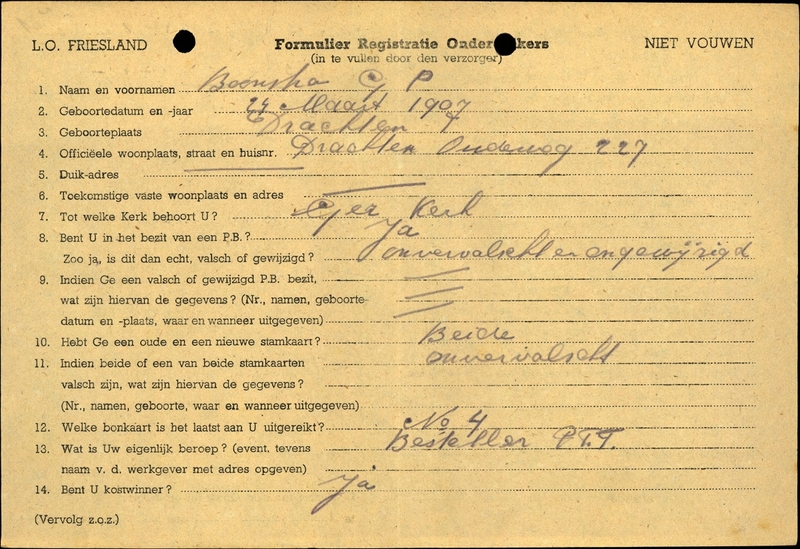 L.O. FRIESLAND Formulier Registratie Onder kers NIET VOUWEN
(in te vullen door den verzorger)
1. Naam en voornamen Boonstra P
2. Geboortedatum en -jaar 24 Maart 1907
3. Geboorteplaats Drachten
4. Officiëele woonplaats, straat en huisnr. Drachten Oudeweg 227
5. Duik-adres
6. Toekomstige vaste woonplaats en adres
7. Tot welke Kerk behoort U? Ger Kerk
8. Bent U in het bezit van een P.B.? Ja
Zoo ja, is dit dan echt, valsch of gewijzigd? onvervalscht en ongewijzigd
9. Indien Ge een valsch of gewijzigd P.B. bezit,
wat zijn hiervan de gegevens? (Nr., namen, geboorte-
datum en -plaats, waar en wanneer uitgegeven)
10. Hebt Ge een oude en een nieuwe stamkaart? Beide
11. Indien beide of een van beide stamkaarten onvervalscht
valsch zijn, wat zijn hiervan de gegevens?
(Nr., namen, geboorte, waar en wanneer uitgegeven)
12. Welke bonkaart is het laatst aan U uitgereikt? No 4
13. Wat is Uw eigenlijk beroep? (event. tevens Besteller P.T.T.
naam v. d. werkgever met adres opgeven)
14. Bent U kostwinner? Ja
(Vervolg z.o.z.)